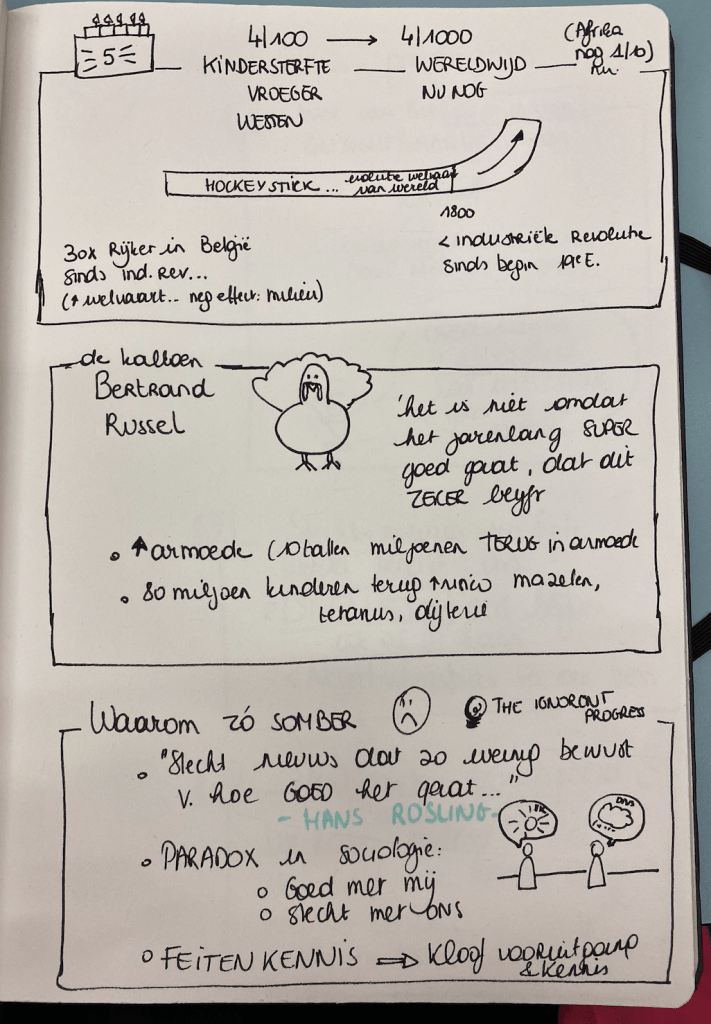 5
4/100 → 4/1000 (Afrika
nog 1/10)
nu.
KINDERSTERFTE — WERELDWIJD
VROEGER NU NOG
WESTEN
HOCKEYSTICK... evolutie welvaart
van wereld
1800
30x Rijker in België
sinds ind. Rev...
(↑ welvaart.. neg effect: milieu)
< industriële Revolutie
sinds begin 19e E.
de kalkoen
Bertrand
Russel
'het is niet omdat
het jarenlang SUPER
goed gaat, dat dit
ZEKER blijft
• ↑ armoede (10 tallen miljoenen TERUG in armoede
• 80 miljoen kinderen terug ↑ risico mazelen,
tetanus, difterie
Waarom zó SOMBER
THE IGNORONT
PROGRESS
• "Slecht nieuws dat zo weinig bewust
v. hoe GOED het gaat..."
- HANS ROSLING -
IK
ONS
• PARADOX in sociologie:
o Goed met mij
o Slecht met ONS
• FEITENKENNIS ⇒ Kloof vooruitgang
& kennis